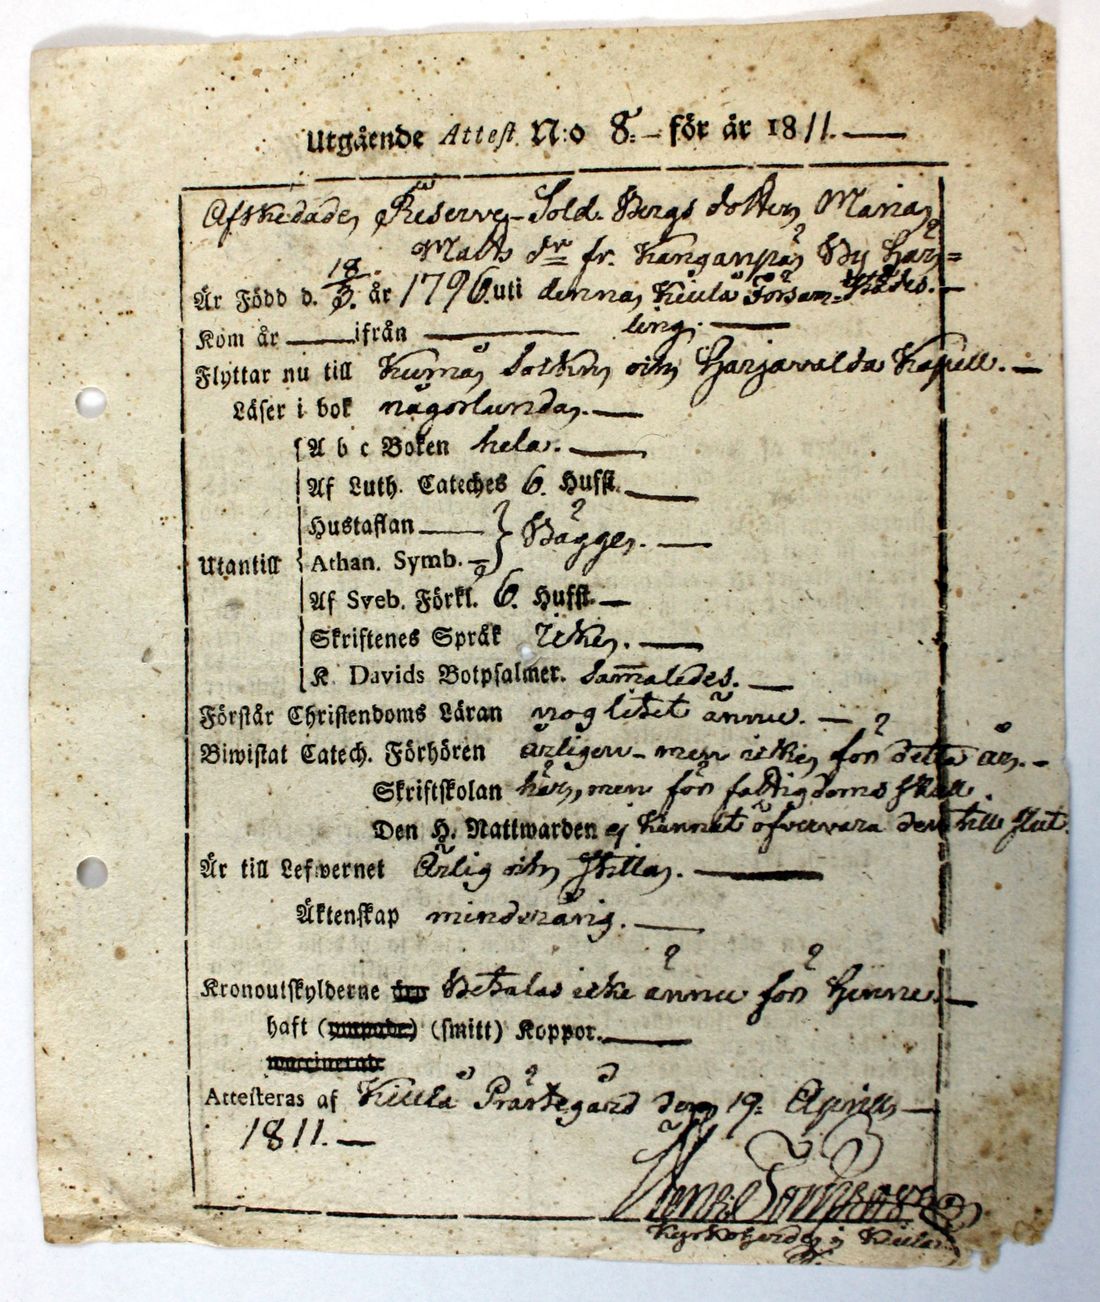 Utgående Attest N:o 8. för år 1811.
Afskedade Reserve-Sold. Bergs dotter Maria
Matts dr fr. Kanganpää By här=
Är Född d. 18/3. år 1796. uti denna Kiula Försam= städes.
Kom år — ifrån — ling.
Flyttar nu till Kumå Sockn och Harjavalda Kapell.
Läser i bok någorlunda.
A b c Boken hela.
Af Luth. Cateches 6. Hufst.
Hustaflan
Bägge.
Utantill Athan. Symb.
Af Sveb. Förkl. 6. Hufst.
Skriftenes Språk Icke.
K. Davids Botpsalmer. Sammaledes.
Förstår Christendoms Läran nog litet ännu.
Biwistat Catech. Förhören årligen - men icke för detta år.
Skriftskolan här, men för fattigdoms skull
Den H. Nattwarden ej kunnat öfvervara den till slut.
Är till Lefwernet Ärlig och stilla.
Äktenskap minderårig.
Kronoutskylderne Betalas icke ännu för Henne.
haft (smitt) Koppor.
Attesteras af Kiula Prästegård den 19. April
1811.
Kyrkoherde i Kiula